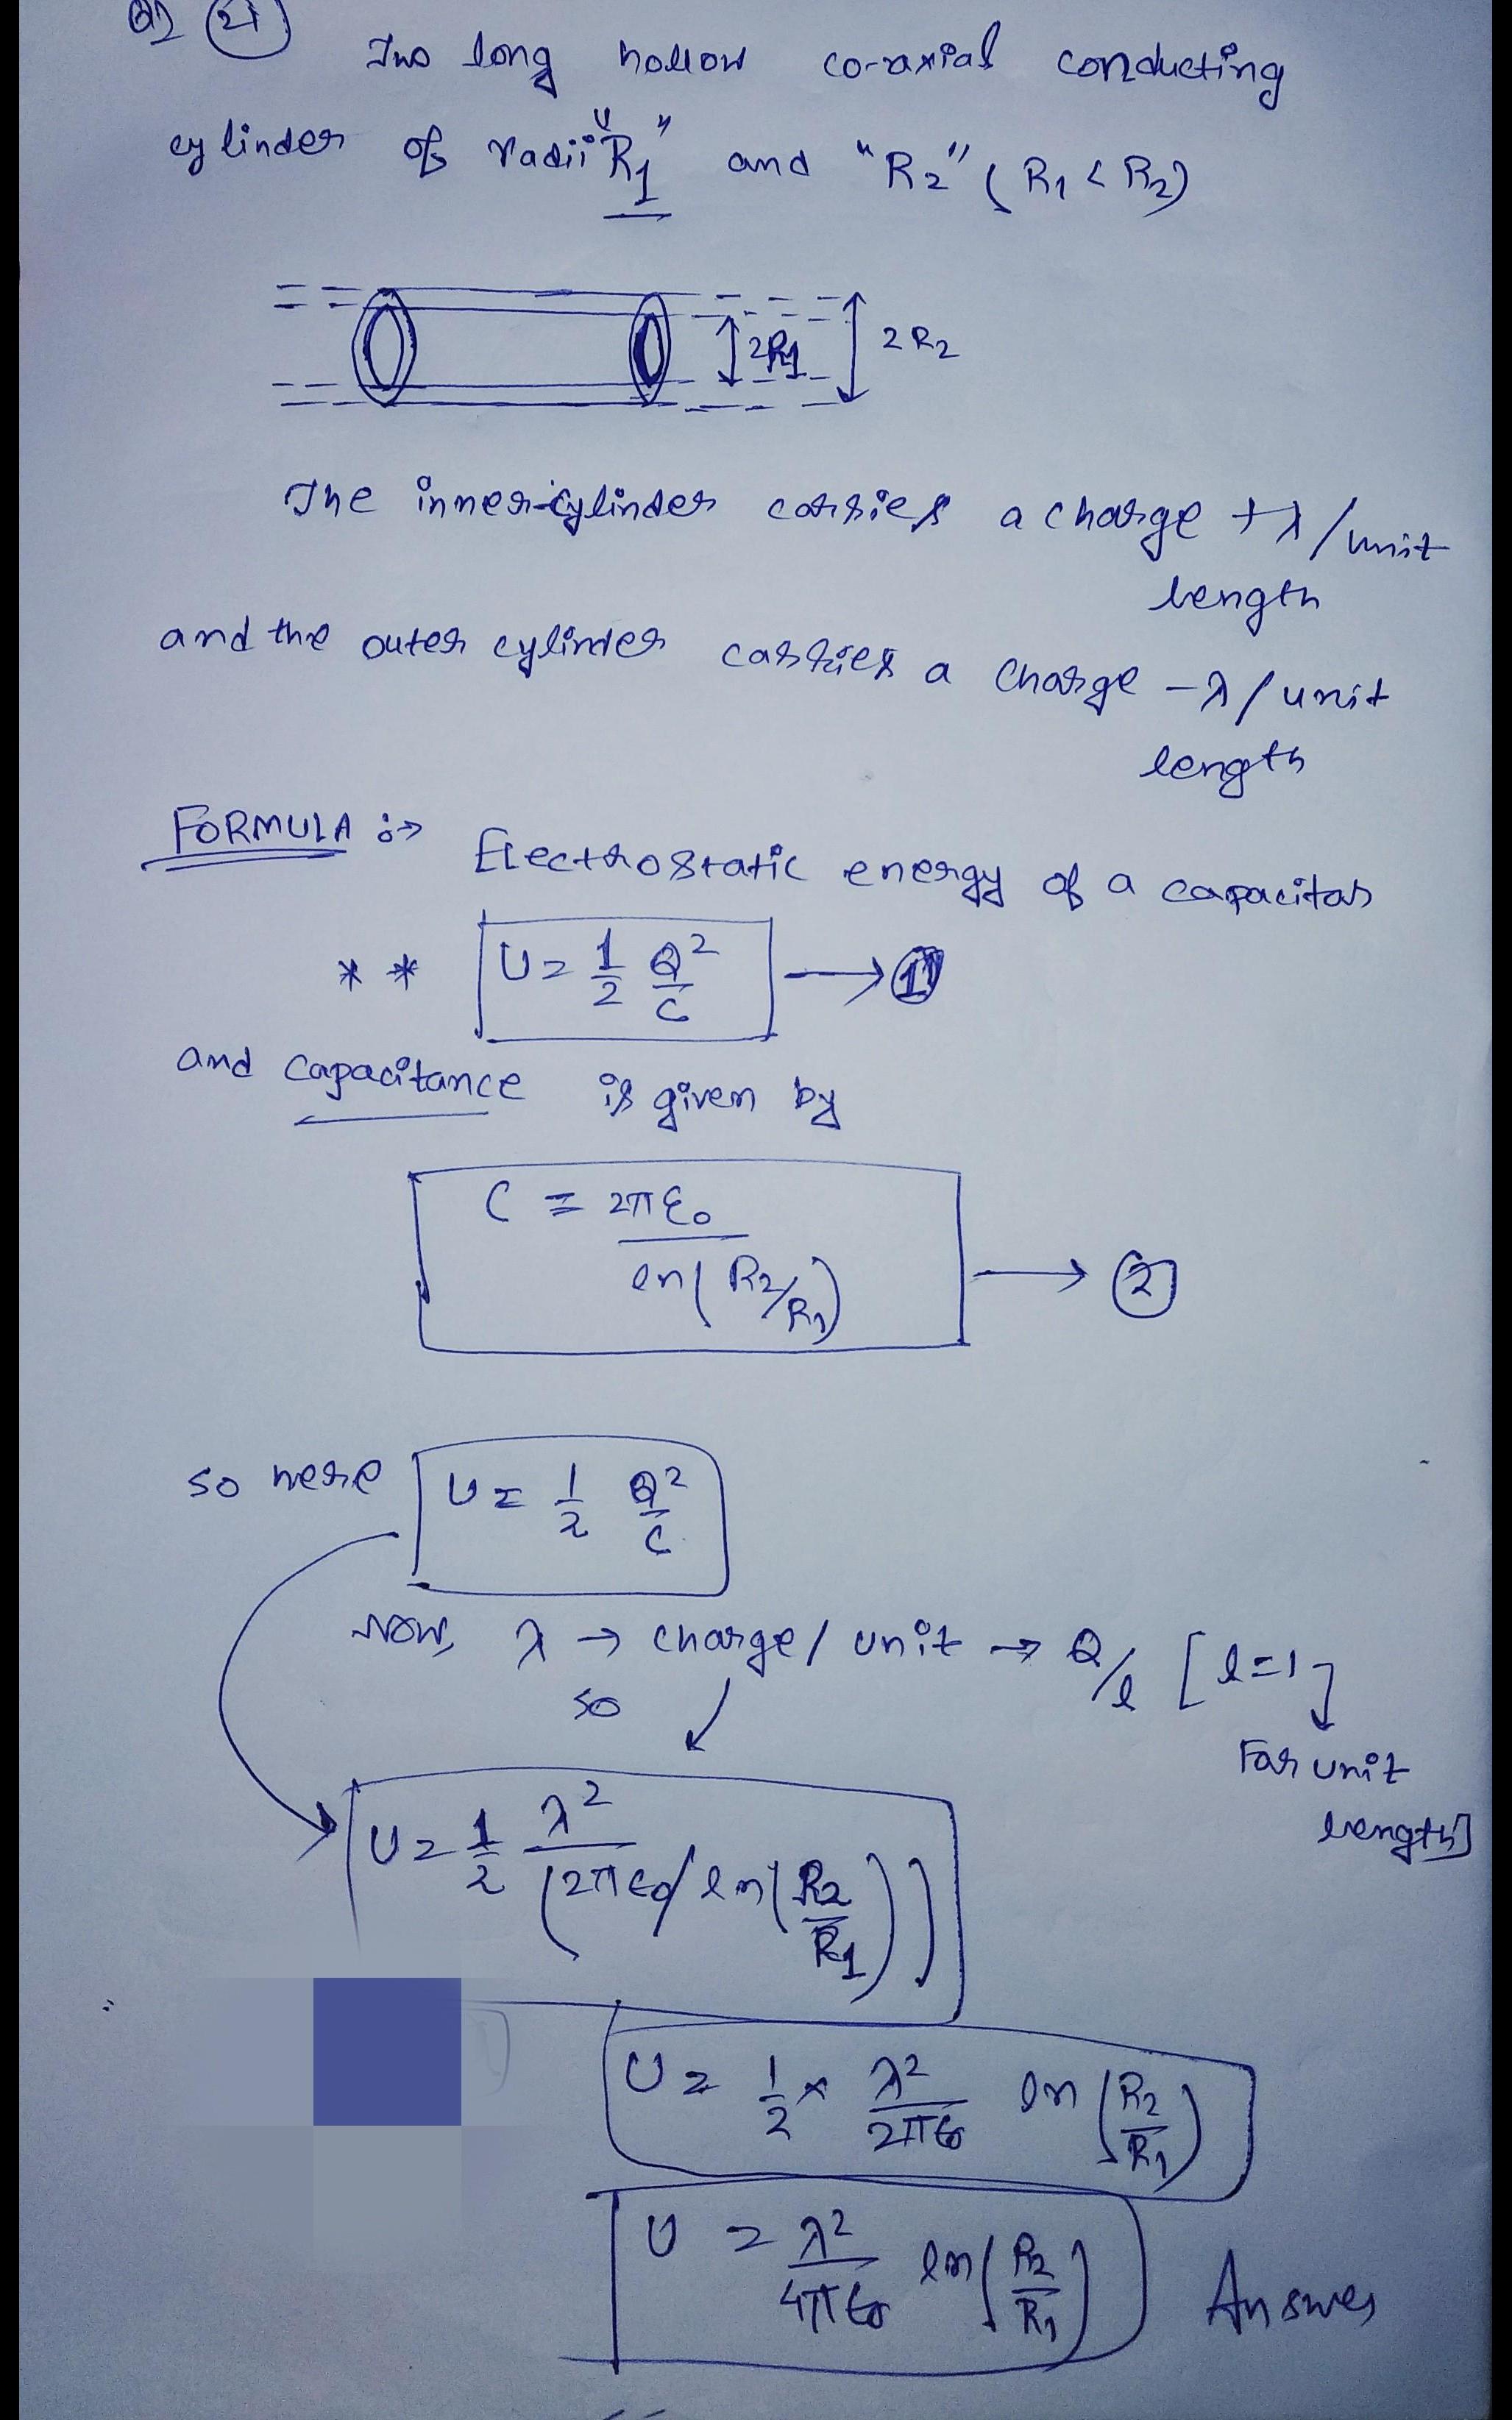 Two long hollow co-axial conducting
cylinder of radii "R1" and "R2" ( R1 < R2)
2R1
2R2
The inner cylinder carries a charge +λ/unit
length
and the outer cylinder carries a charge -λ/unit
length
FORMULA :→ Electrostatic energy of a capacitor
** U = 1/2 Q²/C → 1
and capacitance is given by
C = 2πε₀ / ln(R2/R1) → 2
so here U = 1/2 Q²/C
Now, λ → charge/unit → Q/l [l=1]
so
For unit
length]
U = 1/2 λ²/(2πε₀/ln(R2/R1))
U = 1/2 × λ²/2πε₀ ln(R2/R1)
U = λ²/4πε₀ ln(R2/R1) Answer